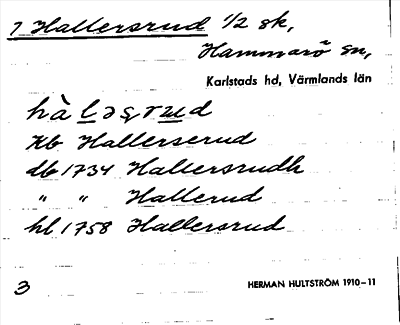 7 Hallersrud 1/2 sk,
Hammarö sn,
Karlstads hd, Värmlands län
hàləʂrɯd
Kb Hallerserud
db 1734 Hallersrudh
" " Hallerud
hl 1758 Hallersrud
3
HERMAN HULTSTRÖM 1910-11